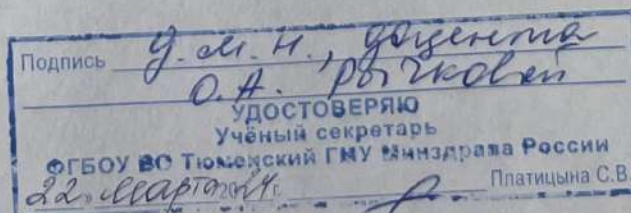 Подпись д.м.н., доцента
О.А. Рычковой
УДОСТОВЕРЯЮ
Учёный секретарь
ФГБОУ ВО Тюменский ГМУ Минздрава России
22» марта 2024г. Платицына С.В.